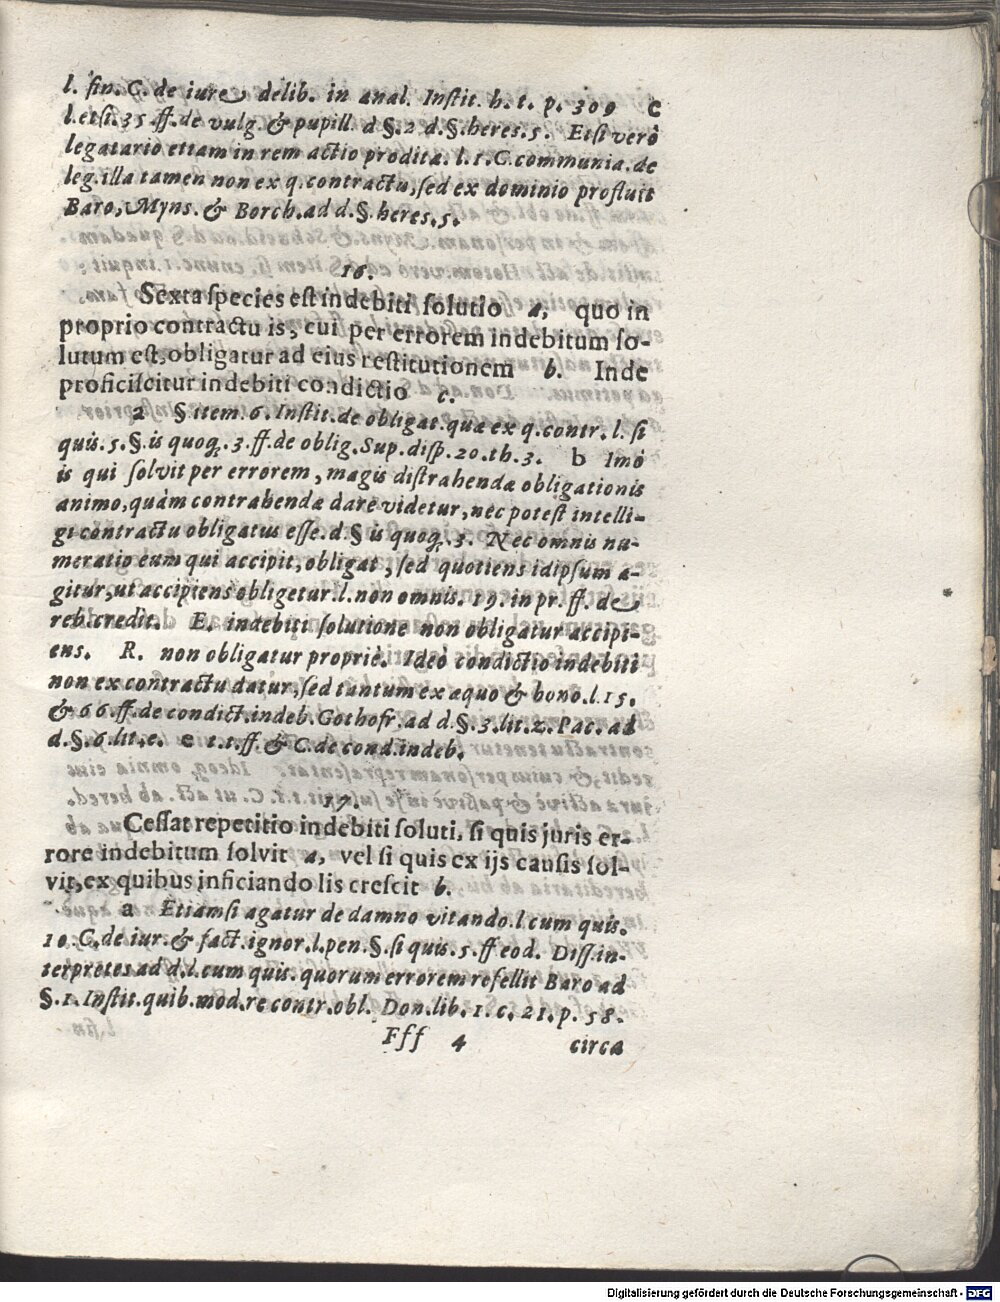 l. fin. C. de iure delib. in anal. Instit. h. t. p. 309 c
l. etsi. 35 ff. de vulg. & pupill. d §. 2 d. §. heres. 5. Etsi verò
legatario etiam in rem actio prodita. l. 1. C communia. de
leg. illa tamen non ex q. contractu, sed ex dominio profluit
Baro, Myns. & Borch. ad d. §. heres. 5.
16.
Sexta species est indebiti solutio a, quo in
proprio contractu is, cui per errorem indebitum so-
lutum est, obligatur ad eius restitutionem b. Inde
proficiscitur indebiti condictio c.
a §. item. 6. Instit. de obligat. quæ ex q. contr. l. si
quis. 5. §. is quoq. 3. ff. de oblig. Sup. disp. 20. th. 3. b Imò
is qui solvit per errorem, magis distrahendæ obligationis
animo, quàm contrahendæ dare videtur, nec potest intelli-
gi contractu obligatus esse. d. § is quoq. 3. Nec omnis nu-
meratio eum qui accipit, obligat, sed quotiens id ipsum a-
gitur, ut accipiens obligetur. l. non omnis. 19. in pr. ff. de
reb. credit. E. indebiti solutione non obligatur accipi-
ens. R. non obligatur propriè. Ideo condictio indebiti
non ex contractu datur, sed tantum ex æquo & bono. l. 15.
& 66. ff. de condict. indeb. Gothofr. ad d. §. 3. lit. z. Pac. ad
d. §. 6. lit. e. c t. t. ff. & C. de cond. indeb.
17.
Cessat repetitio indebiti soluti, si quis juris er-
rore indebitum solvit a, vel si quis ex ijs causis sol-
vit, ex quibus inficiando lis crescit b.
a Etiamsi agatur de damno vitando. l. cum quis.
10. C. de iur. & fact. ignor. l. pen. §. si quis. 5. ff eod. Diss. in-
terpretes ad d. l. cum quis. quorum errorem refellit Baro ad
§. 1. Instit. quib. mod. re contr. obl. Don. lib. 1. c. 21. p. 58.
Fff 4 circa
Digitalisierung gefördert durch die Deutsche Forschungsgemeinschaft - DFG